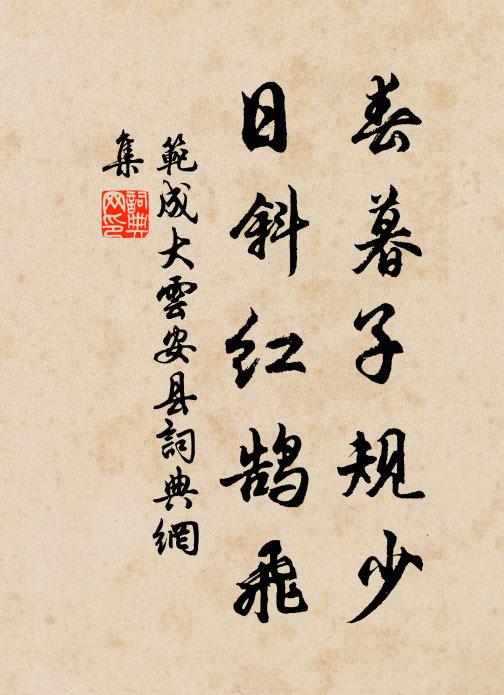 春暮子规少
日斜红鹄飛
範成大雲安县詞典網
集
詞典
网印